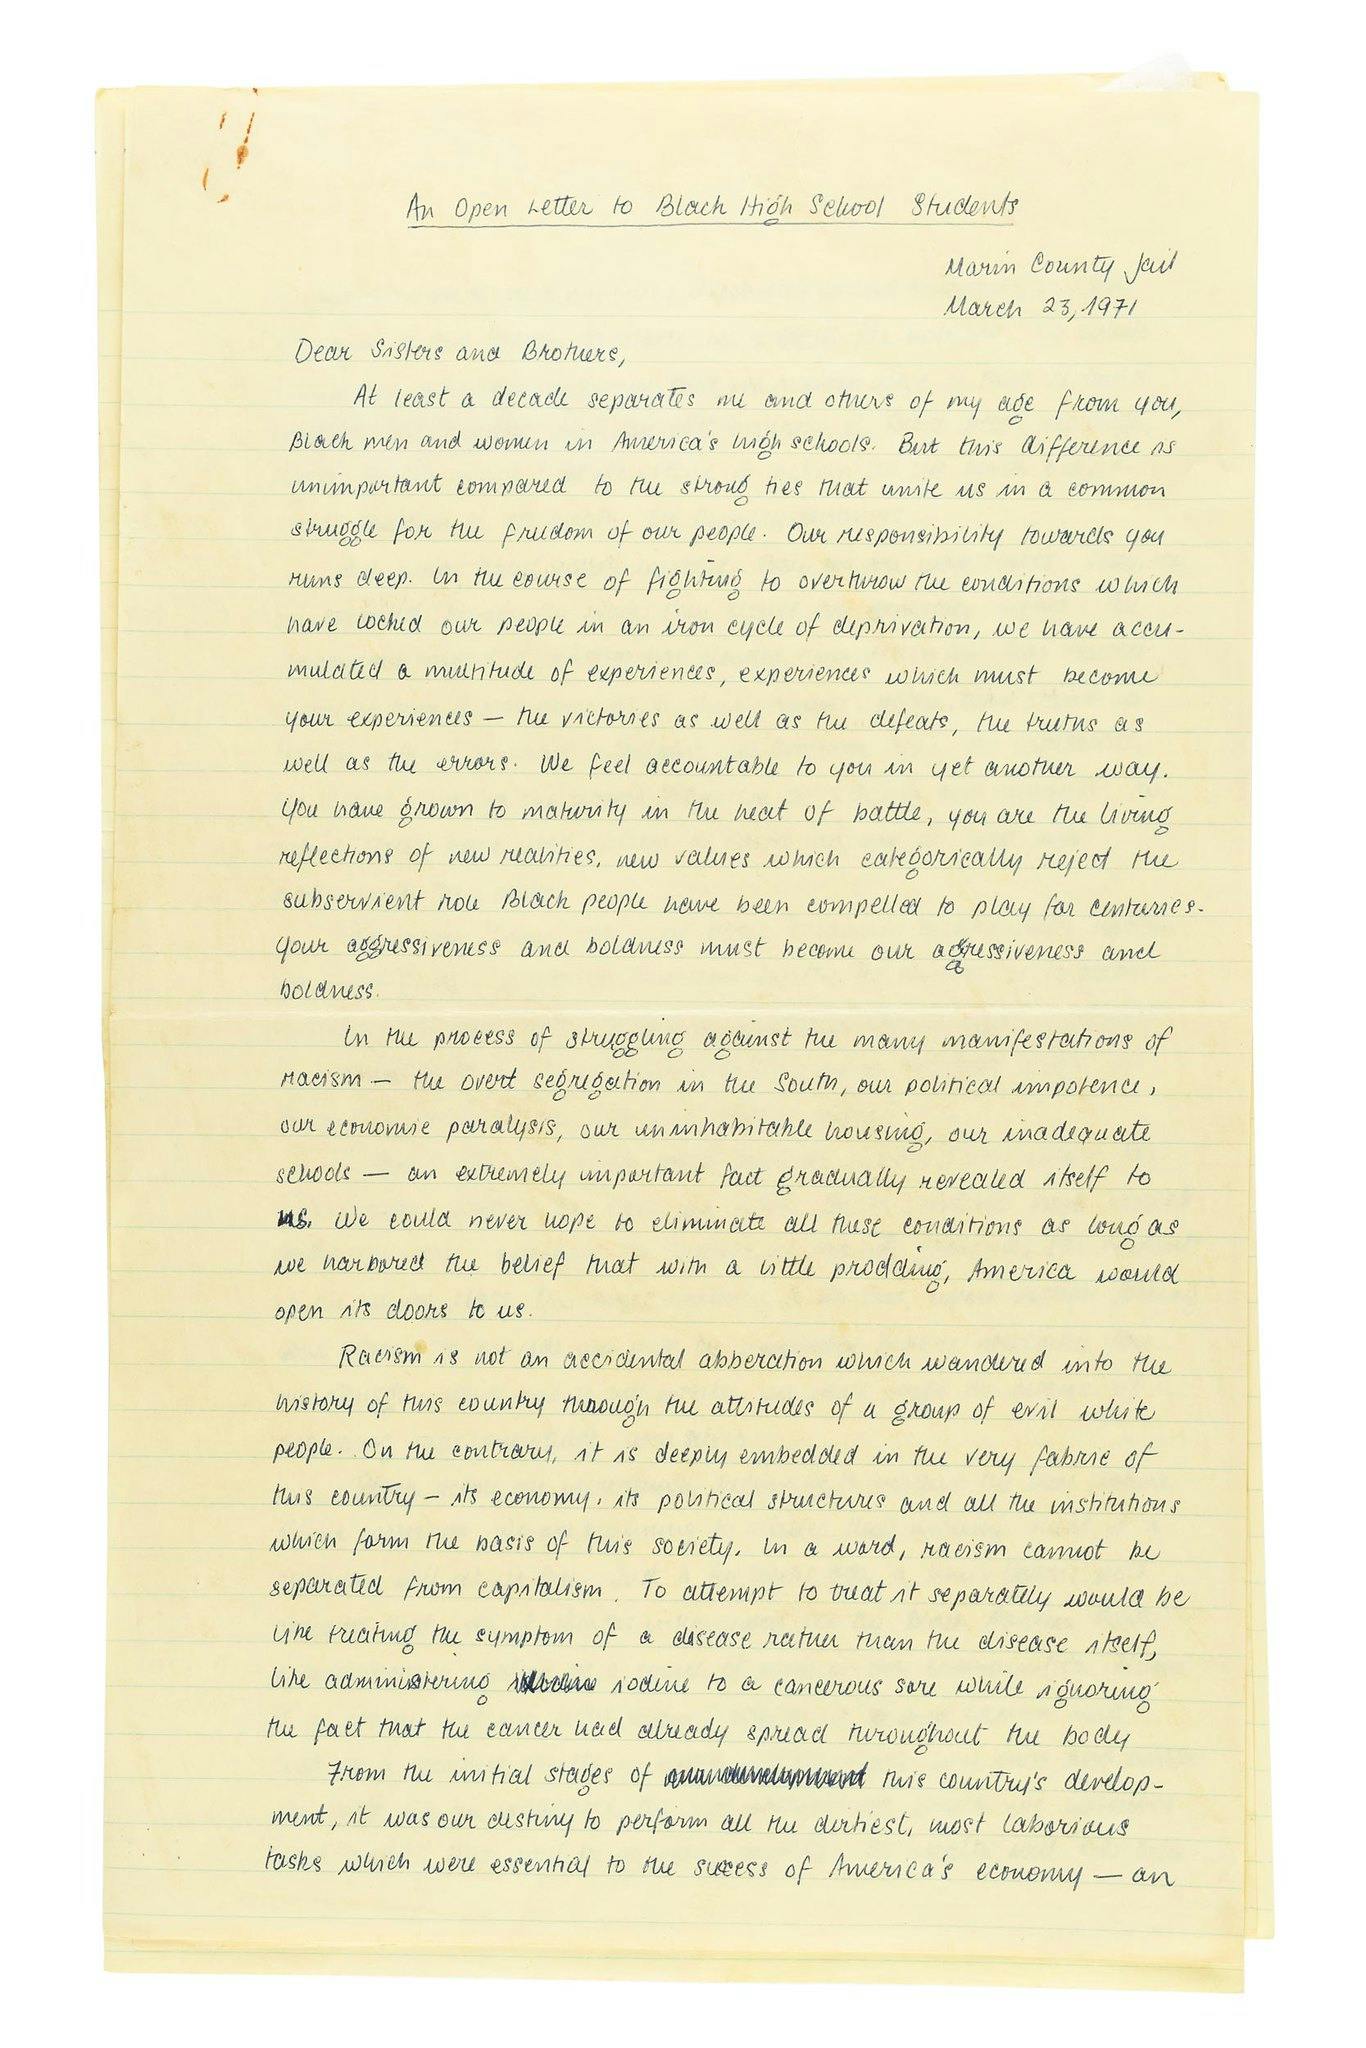 An Open Letter to Black High School Students
Marin County Jail
March 23, 1971
Dear Sisters and Brothers,
At least a decade separates me and others of my age from you,
Black men and women in America's high schools. But this difference is
unimportant compared to the strong ties that unite us in a common
struggle for the freedom of our people. Our responsibility towards you
runs deep. In the course of fighting to overthrow the conditions which
have locked our people in an iron cycle of deprivation, we have accu-
mulated a multitude of experiences, experiences which must become
your experiences — the victories as well as the defeats, the truths as
well as the errors. We feel accountable to you in yet another way.
You have grown to maturity in the heat of battle, you are the living
reflections of new realities, new values which categorically reject the
subservient role Black people have been compelled to play for centuries.
Your aggressiveness and boldness must become our aggressiveness and
boldness.
In the process of struggling against the many manifestations of
racism — the overt segregation in the South, our political impotence,
our economic paralysis, our uninhabitable housing, our inadequate
schools — an extremely important fact gradually revealed itself to
us. We could never hope to eliminate all these conditions as long as
we harbored the belief that with a little prodding, America would
open its doors to us.
Racism is not an accidental abberation which wandered into the
history of this country through the attitudes of a group of evil white
people. On the contrary, it is deeply embedded in the very fabric of
this country – its economy, its political structures and all the institutions
which form the basis of this society. In a word, racism cannot be
separated from capitalism. To attempt to treat it separately would be
like treating the symptom of a disease rather than the disease itself,
like administering iodine to a cancerous sore while ignoring
the fact that the cancer had already spread throughout the body
From the initial stages of this country's develop-
ment, it was our destiny to perform all the dirtiest, most laborious
tasks which were essential to the success of America's economy — an